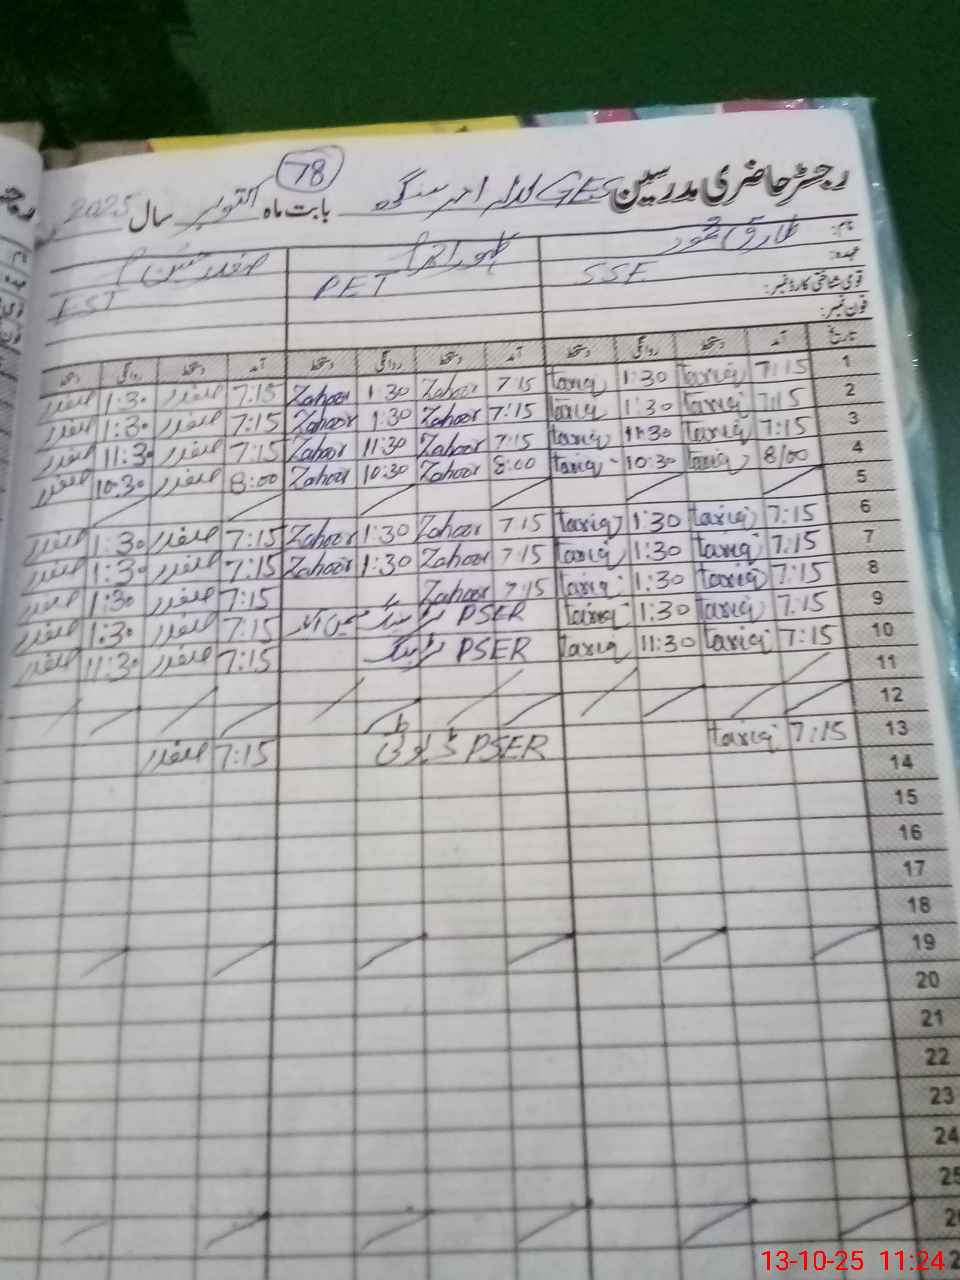 رجسٹر حاضری مدرسین GES للہ امر سنگھ بابت ماہ اکتوبر سال 2025
78
نام: طارق محمود ظہور صفدر حسین
عہدہ: SSE PET EST
قومی شناختی کارڈ نمبر:
فون نمبر:
تاریخ آمد دستخط روانگی دستخط آمد دستخط روانگی دستخط آمد دستخط روانگی دستخط
1 7:15 tariq 1:30 tariq 7:15 Zahoor 1:30 Zahoor 7:15 صفدر 1:30 صفدر
2 7:15 tariq 1:30 tariq 7:15 Zahoor 1:30 Zahoor 7:15 صفدر 1:30 صفدر
3 7:15 tariq 11:30 tariq 7:15 Zahoor 11:30 Zahoor 7:15 صفدر 11:30 صفدر
4 8/00 tariq 10:30 tariq 8:00 Zahoor 10:30 Zahoor 8:00 صفدر 10:30 صفدر
5
6 7:15 tariq 1:30 tariq 7:15 Zahoor 1:30 Zahoor 7:15 صفدر 1:30 صفدر
7 7:15 tariq 1:30 tariq 7:15 Zahoor 1:30 Zahoor 7:15 صفدر 1:30 صفدر
8 7:15 tariq 1:30 tariq 7:15 Zahoor 7:15 صفدر 1:30 صفدر
9 7:15 tariq 1:30 tariq PSER ٹریننگ 7:15 صفدر 1:30 صفدر
10 7:15 tariq 11:30 tariq PSER ٹریننگ 7:15 صفدر 11:30 صفدر
11
12
13 7:15 tariq PSER ڈیوٹی 7:15 صفدر
14
15
16
17
18
19
20
21
22
23
24
25
13-10-25 11:24